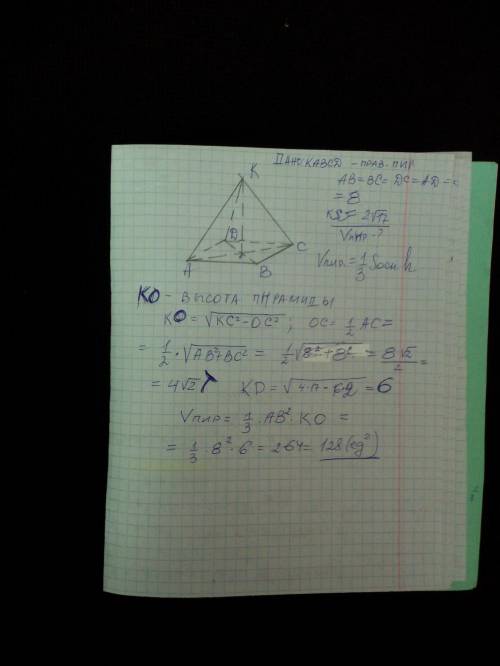 Дано: KABCD - прав. пир
AB = BC = DC = AD =
= 8
= 2√17
Vпир - ?
K
D
C
A
B
Vпир. = 1/3 Sосн h
KO - высота пирамиды
KO = √KC² - OC² ; OC = 1/2 AC =
= 1/2 · √AB² + BC² = 1/2 √8² + 8² = 8√2/2 =
= 4√2 KD = = 6
Vпир = 1/3 · AB² · KO =
= 1/3 · 8² · 6 = 2·64 = 128 (ед³)